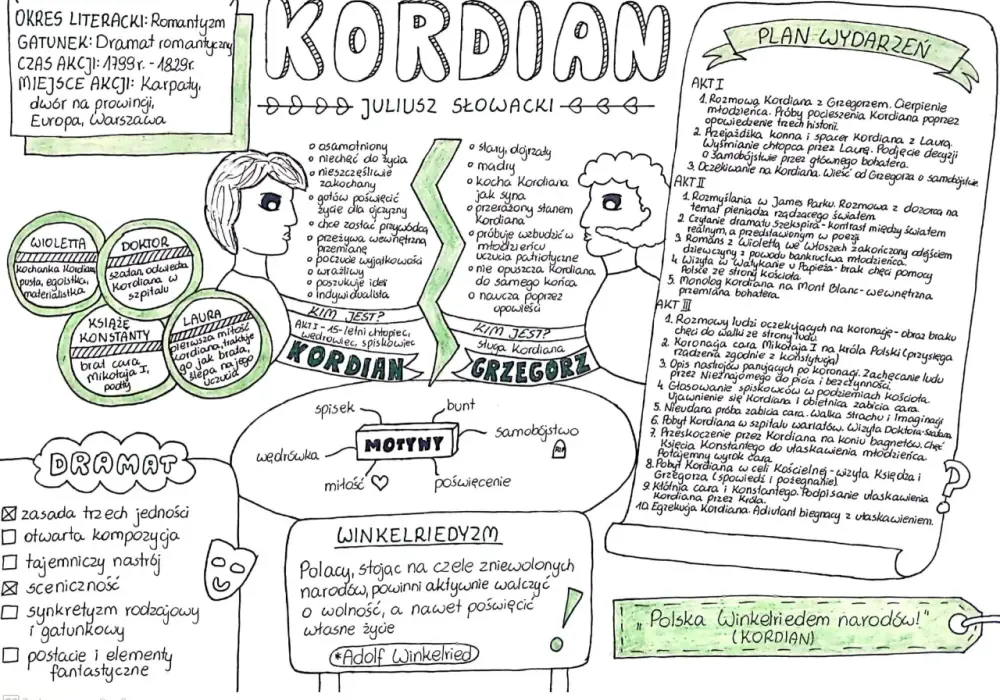 OKRES LITERACKI: Romantyzm
GATUNEK: Dramat romantyczny
CZAS AKCJI: 1799r. - 1829r.
MIEJSCE AKCJI: Karpaty,
dwór na prowincji,
Europa, Warszawa
KORDIAN
JULIUSZ SŁOWACKI
WIOLETTA
kochanka Kordiana
pusta, egoistka,
materialistka
DOKTOR
szatan, odwiedza
Kordiana w
szpitalu
KSIĄŻĘ
KONSTANTY
brat cara
Mikołaja I,
podły
LAURA
pierwsza miłość
Kordiana, traktuje
go jak brata,
ślepa na jego
uczucia
o osamotniony
o niechęć do życia
o nieszczęśliwie
zakochany
o gotów poświęcić
życie dla ojczyzny
o chce zostać przywódcą
o przeżywa wewnętrzną
przemianę
o poczucie wyjątkowości
o wrażliwy
o poszukuje idei
o indywidualista
KIM JEST?
AKT I - 15-letni chłopiec,
wędrowiec, spiskowiec
KORDIAN
o stary, dojrzały
o mądry
o kocha Kordiana
jak syna
o przerażony stanem
Kordiana
o próbuje wzbudzić w
młodzieńcu
uczucia patriotyczne
o nie opuszcza Kordiana
do samego końca
o naucza poprzez
opowieści
KIM JEST?
sługa Kordiana
GRZEGORZ
MOTYWY
spisek
bunt
wędrówka
samobójstwo
RIP
miłość
poświęcenie
DRAMAT
zasada trzech jedności
otwarta kompozycja
tajemniczy nastrój
sceniczność
synkretyzm rodzajowy
i gatunkowy
postacie i elementy
fantastyczne
WINKELRIEDYZM
Polacy, stojąc na czele zniewolonych
narodów, powinni aktywnie walczyć
o wolność, a nawet poświęcić
własne życie
*Adolf Winkelried
PLAN WYDARZEŃ
AKT I
1. Rozmowa Kordiana z Grzegorzem. Cierpienie
młodzieńca. Próby pocieszenia Kordiana poprzez
opowiedzenie trzech historii.
2. Przejażdżka konna i spacer Kordiana z Laurą.
Wyśmianie chłopca przez Laurę. Podjęcie decyzji
o samobójstwie przez głównego bohatera.
3. Oczekiwanie na Kordiana. Wieść od Grzegorza o samobójstwie.
AKT II
1. Rozmyślania w James Parku. Rozmowa z dozorcą na
temat pieniądza rządzącego światem.
2. Czytanie dramatu Szekspira - kontrast między światem
realnym, a przedstawionym w poezji
3. Romans z Wiolettą we Włoszech zakończony odejściem
dziewczyny z powodu bankructwa młodzieńca.
4. Wizyta w Watykanie u Papieża - brak chęci pomocy
Polsce ze strony kościoła.
5. Monolog Kordiana na Mont Blanc - wewnętrzna
przemiana bohatera.
AKT III
1. Rozmowy ludzi oczekujących na koronację - obraz braku
chęci do walki ze strony ludu
2. Koronacja cara Mikołaja I na króla Polski (przysięga
rządzenia zgodnie z konstytucją)
3. Opis nastrojów panujących po koronacji. Zachęcanie ludu
przez Nieznajomego do picia i bezczynności.
4. Głosowanie spiskowców w podziemiach kościoła.
Ujawnienie się Kordiana i obietnica zabicia cara.
5. Nieudana próba zabicia cara. Walka Strachu i Imaginacji
6. Pobyt Kordiana w szpitalu wariatów. Wizyta Doktora-Szatana.
7. Przeskoczenie przez Kordiana na koniu bagnetów. Chęć
Księcia Konstantego do ułaskawienia młodzieńca.
Potajemny wyrok cara.
8. Pobyt Kordiana w celi Kościelnej - wizyta Księdza i
Grzegorza (spowiedź i pożegnanie)
9. Kłótnia cara i Konstantego. Podpisanie ułaskawienia
Kordiana przez Króla.
10. Egzekucja Kordiana. Adiutant biegnący z ułaskawieniem.
„Polska Winkelriedem narodów!"
(KORDIAN)